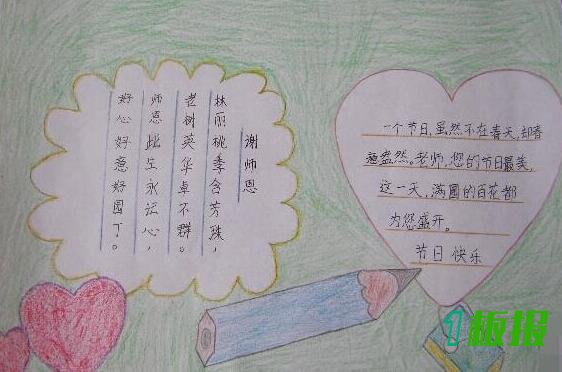 谢师恩
林丽桃季含芳珠，
老树英华卓不群。
师恩生永记心，
好心好意好园丁。
一个节日,虽然不在春天,却春
意盎然。老师,您的节日最美,
这一天,满园的百花都
为您盛开。
节日 快乐
1板报